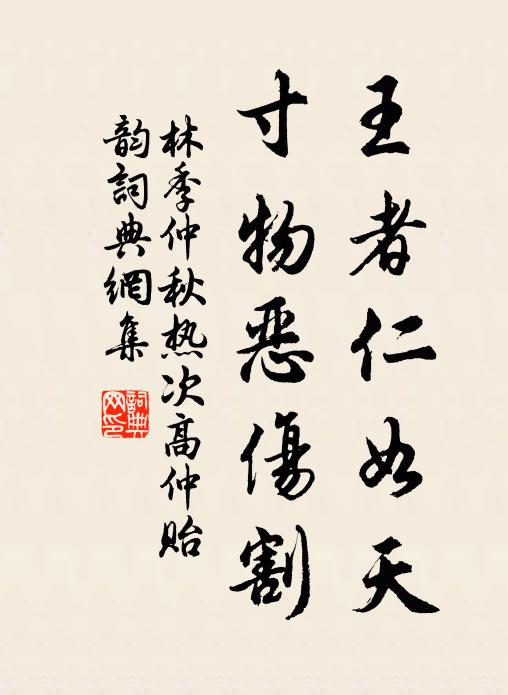 王者仁如天
寸物惡傷割
林季仲秋热次高仲貽
韵詞典網集
詞典
网印